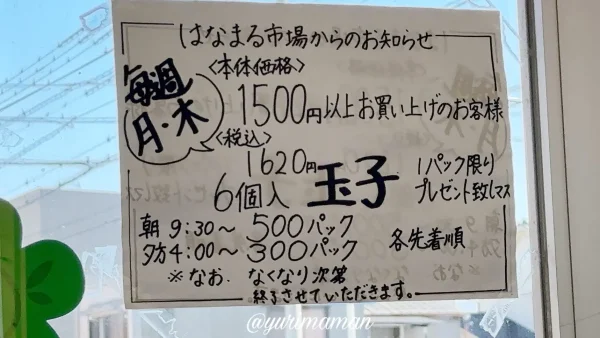 はなまる市場からのお知らせ
毎週
月・木
〈本体価格〉
1500円以上お買い上げのお客様
〈税込〉
1620円
6個入 玉子 1パック限り
プレゼント致しマス
朝 9:30～ 500パック
夕方 4:00～ 300パック
各先着順
※なお、なくなり次第
終了させていただきます。
@yurimaman